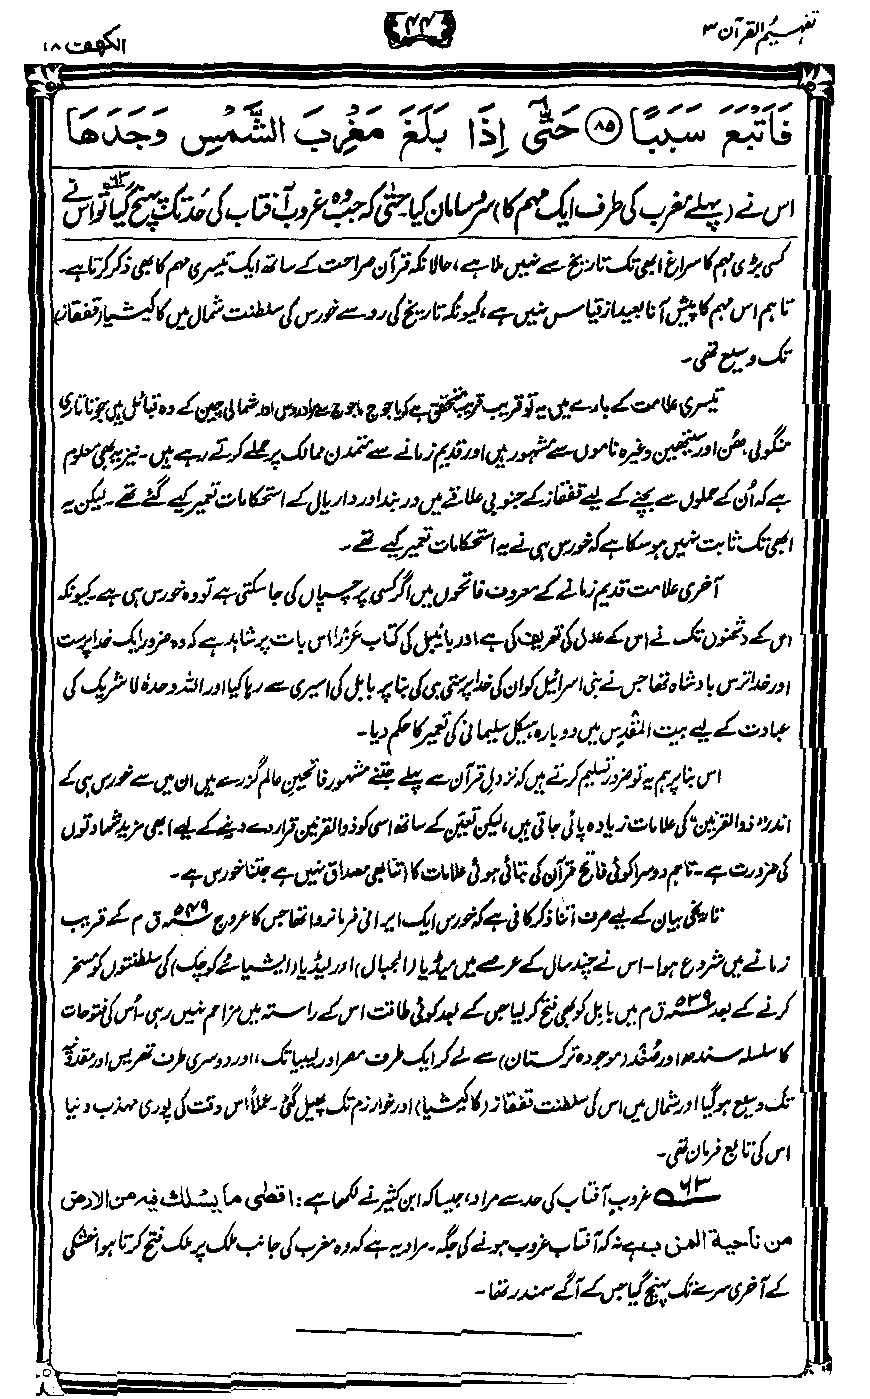 تفہیم القرآن ۳
۴۴
الکہف ۱۸
فَاَتْبَعَ سَبَبًا ۝۸۵ حَتّٰۤى اِذَا بَلَغَ مَغْرِبَ الشَّمْسِ وَجَدَهَا
اس نے (پہلے مغرب کی طرف ایک مہم کا) سروسامان کیا۔ حتیٰ کہ جب وہ غروبِ آفتاب کی حد تک پہنچ گیا ۶۳ تو اس نے
کسی بڑی مہم کا سراغ ابھی تک تاریخ سے نہیں ملا ہے، حالانکہ قرآن صراحت کے ساتھ ایک تیسری مہم کا بھی ذکر کرتا ہے۔
تاہم اس مہم کا پیش آنا بعید از قیاس نہیں ہے، کیونکہ تاریخ کی رو سے خورس کی سلطنت شمال میں کاکیشیا (قفقاز)
تک وسیع تھی۔
تیسری علامت کے بارے میں یہ تو قریب قریب متحقق ہے کہ یاجوج ماجوج سے مراد روس اور شمالی چین کے وہ قبائل ہیں جو تاتاری
منگولی، ھُن اور سیتھین وغیرہ ناموں سے مشہور ہیں اور قدیم زمانے سے متمدن ممالک پر حملے کرتے رہے ہیں۔ نیز یہ بھی معلوم
ہے کہ اُن کے حملوں سے بچنے کے لیے قفقاز کے جنوبی علاقے میں دربند اور داریال کے استحکامات تعمیر کیے گئے تھے۔ لیکن یہ
ابھی تک ثابت نہیں ہو سکا ہے کہ خورس ہی نے یہ استحکامات تعمیر کیے تھے۔
آخری علامت قدیم زمانے کے معروف فاتحوں میں اگر کسی پر چسپاں کی جا سکتی ہے تو وہ خورس ہی ہے۔ کیونکہ
اس کے دشمنوں تک نے اس کے عدل کی تعریف کی ہے اور بائیبل کی کتاب عَزْرا اس بات پر شاہد ہے کہ وہ ضرور ایک خدا پرست
اور خدا ترس بادشاہ تھا جس نے بنی اسرائیل کو ان کی خدا پرستی ہی کی بنا پر بابل کی اسیری سے رہا کیا اور اللہ وحدہٗ لا شریک کی
عبادت کے لیے بیت المقدس میں دوبارہ ہیکل سلیمانی کی تعمیر کا حکم دیا۔
اس بنا پر ہم یہ تو ضرور تسلیم کرتے ہیں کہ نزولِ قرآن سے پہلے جتنے مشہور فاتحینِ عالم گزرے ہیں ان میں سے خورس ہی کے
اندر "ذوالقرنین" کی علامات زیادہ پائی جاتی ہیں، لیکن تعیّن کے ساتھ اسی کو ذوالقرنین قرار دے دینے کے لیے ابھی مزید شہادتوں
کی ضرورت ہے۔ تاہم دوسرا کوئی فاتح قرآن کی بتائی ہوئی علامات کا اتنا بھی مصداق نہیں ہے جتنا خورس ہے۔
تاریخی بیان کے لیے صرف اتنا ذکر کافی ہے کہ خورس ایک ایرانی فرمانروا تھا جس کا عروج ۵۴۹ ق م کے قریب
زمانے میں شروع ہوا۔ اس نے چند سال کے عرصے میں میڈیا (الجبال) اور لیڈیا (ایشیائے کوچک) کی سلطنتوں کو مسخر
کرنے کے بعد ۵۳۹ ق م میں بابل کو بھی فتح کر لیا جس کے بعد کوئی طاقت اس کے راستہ میں مزاحم نہیں رہی۔ اُس کی فتوحات
کا سلسلہ سندھ اور صُغْد (موجودہ ترکستان) سے لے کر ایک طرف مصر اور لیبیا تک، اور دوسری طرف تھریس اور مقدونیہ
تک وسیع ہو گیا اور شمال میں اس کی سلطنت قفقاز (کاکیشیا) اور خوارزم تک پھیل گئی۔ عملاً اس وقت کی پوری مہذب دنیا
اس کی تابع فرمان تھی۔
۶۳ غروبِ آفتاب کی حد سے مراد، جیسا کہ ابن کثیر نے لکھا ہے: اقصٰی ما یسلك فیه من الارض
من ناحیة المغرب ہے نہ کہ آفتاب غروب ہونے کی جگہ۔ مراد یہ ہے کہ وہ مغرب کی جانب ملک پر ملک فتح کرتا ہوا خشکی
کے آخری سرے تک پہنچ گیا جس کے آگے سمندر تھا۔